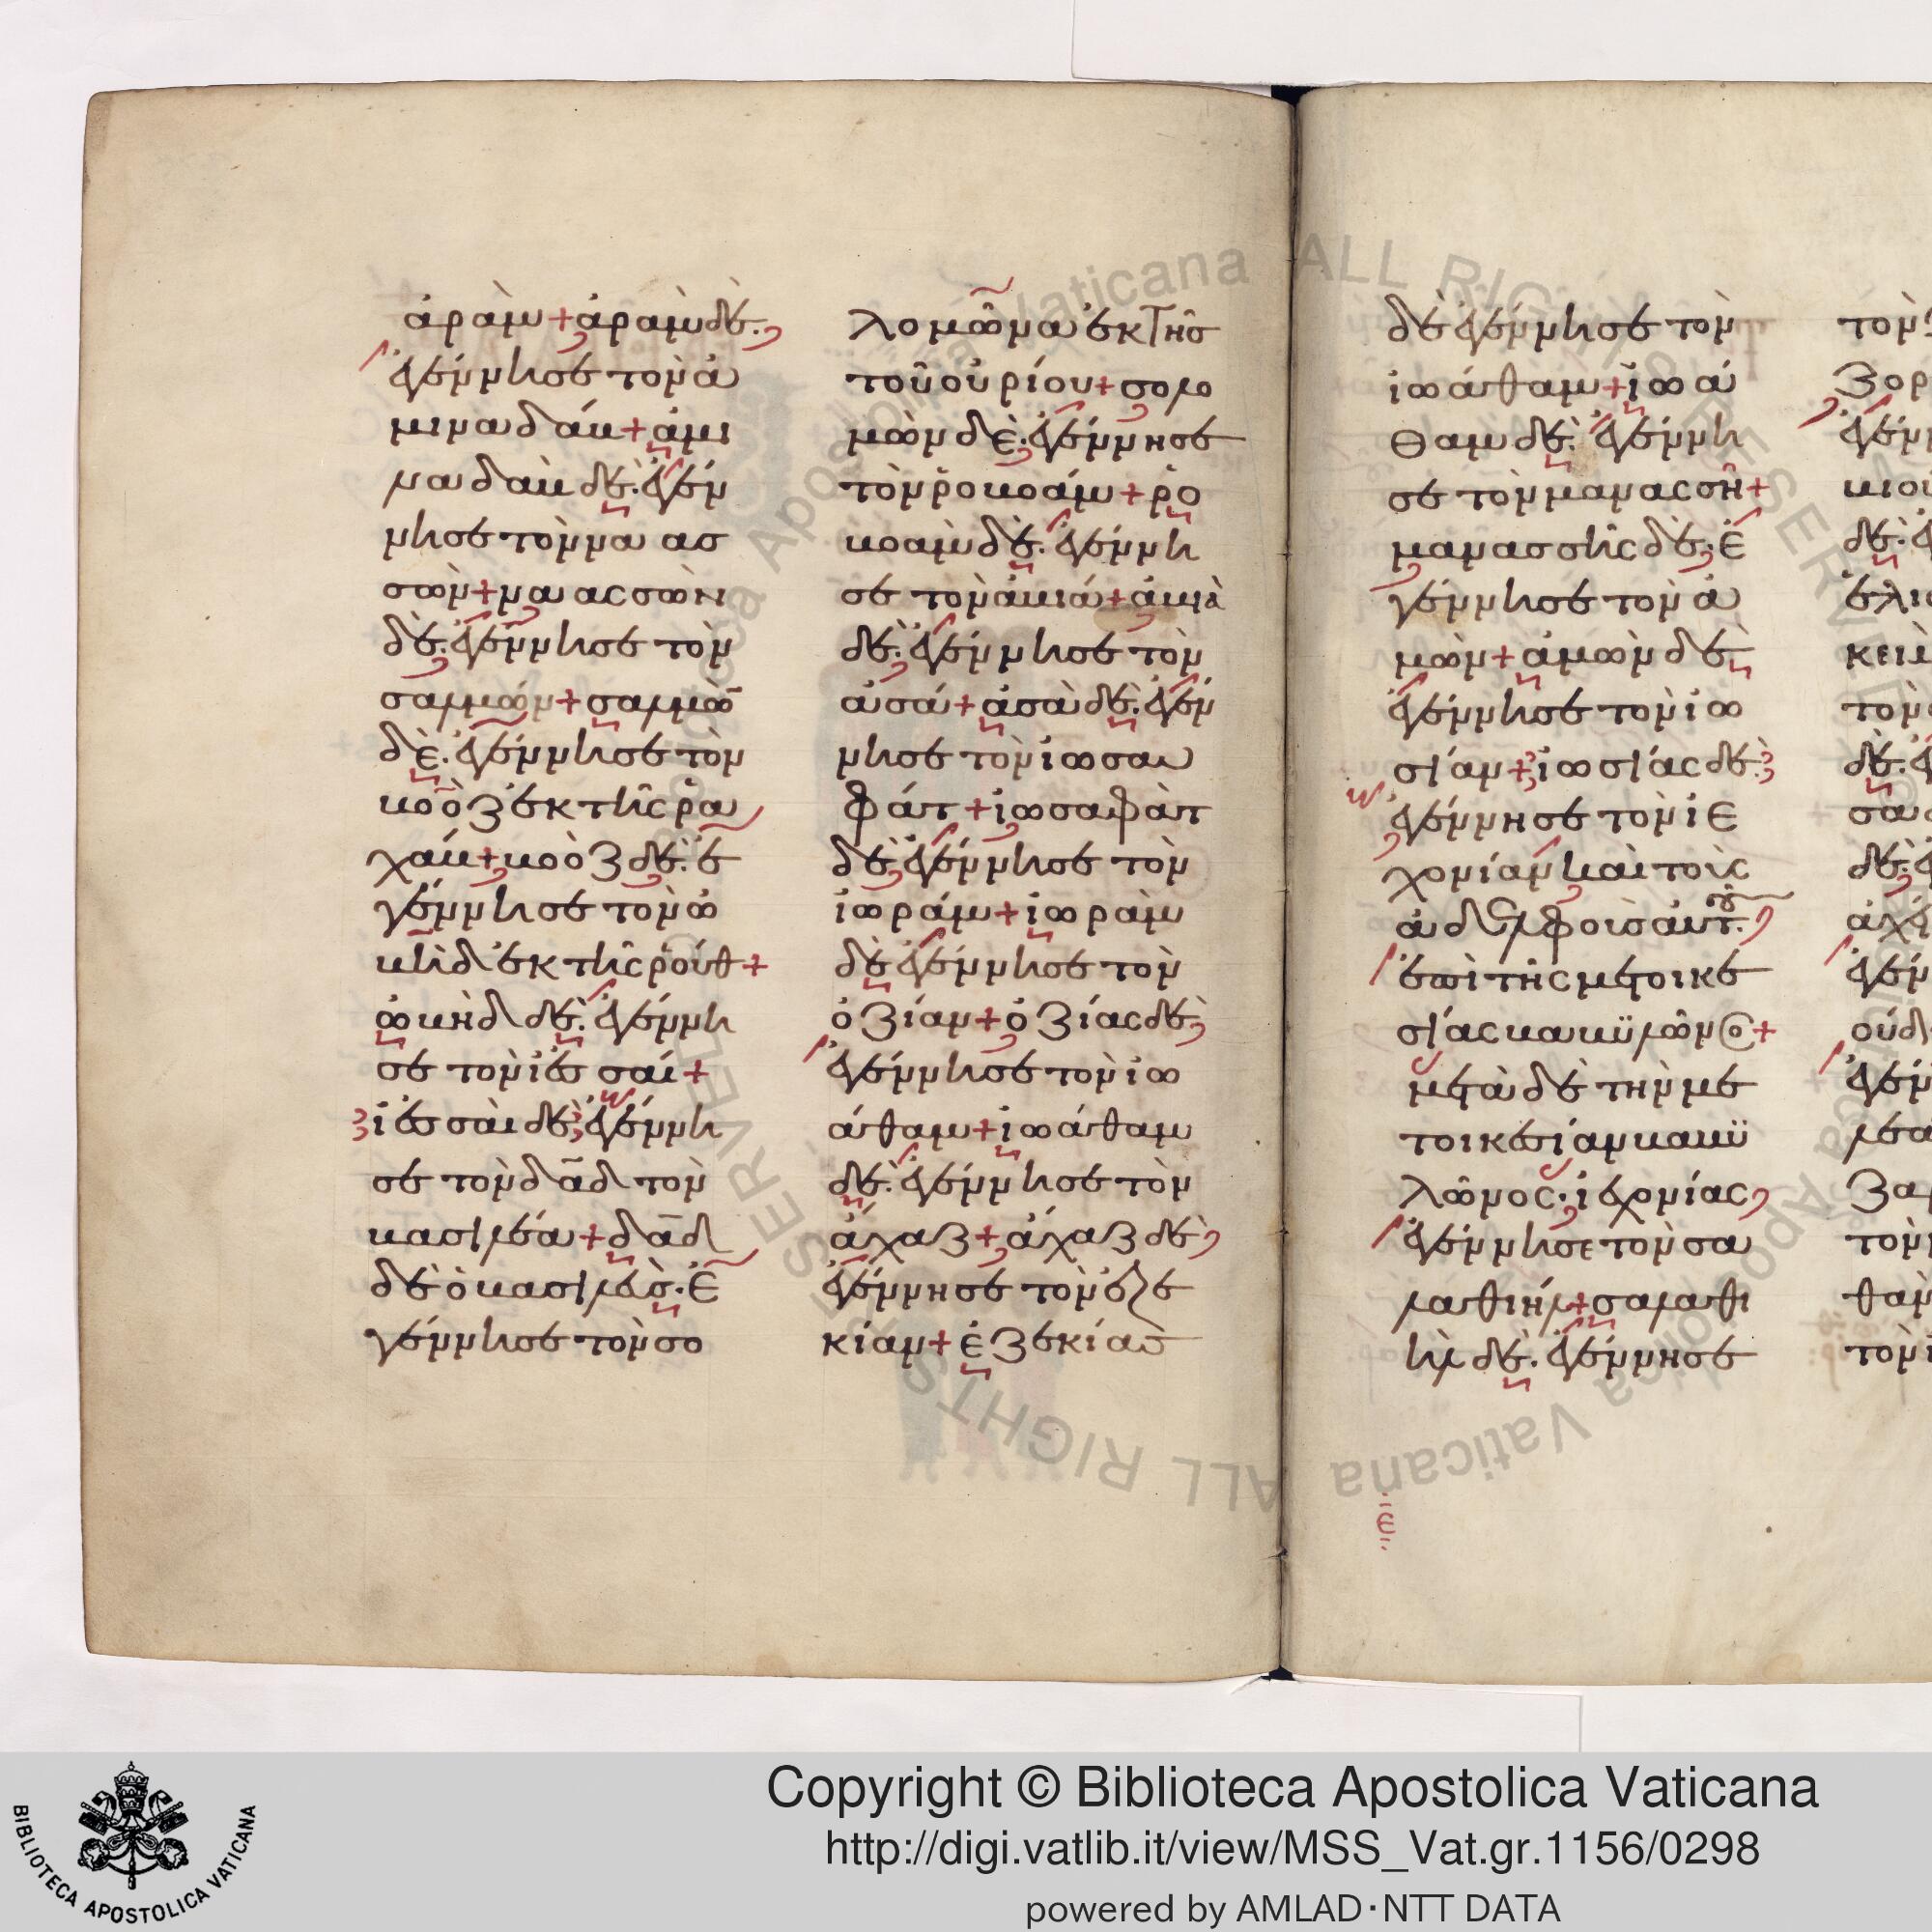 ἀρὰμ + ἀραμ δὲ.
ἐγέννησε τὸν ἀ
μιναδάβ + ἀμι
ναδὰβ δὲ. ἐγέν
νησε τὸν να ασ
σών + να ασσὼν
δὲ. ἐγέννησε τὸν
σαλμών + σαλμὼ̄
δὲ. ἐγέννησε τὸν
βοὸζ ἐκ τῆς ρα
χάβ + βοὸζ δὲ. ἐ
γέννησε τὸν ὠ
βὴδ ἐκ τῆς ρούθ +
ὠβὴδ δὲ. ἐγέννη
σε τὸν ἰεσσαί +
ἰεσσαὶ δὲ ἐγέννη
σε τὸν δᾱδ τὸν
βασιλέα + δᾱδ
δὲ ὁ βασιλεὺς. ἐ
γέννησε τὸν σο
λομῶνα ἐκ τῆς
τοῦ οὐρίου + σολο
μὼν δὲ. ἐγέννησε
τὸν ῥοβοάμ + ῥο
βοὰμ δὲ. ἐγέννη
σε τὸν ἀβιά + ἀβιὰ
δὲ. ἐγέννησε τὸν
ἀσά + ἀσὰ δὲ. ἐγέν
νησε τὸν ἰωσα
φάτ + ἰωσαφὰτ
δὲ. ἐγέννησε τὸν
ἰωράμ + ἰωρὰμ
δὲ ἐγέννησε τὸν
ὀζίαν + ὀζίας δὲ
ἐγέννησε τὸν ἰω
άθαμ + ἰωάθαμ
δὲ. ἐγέννησε τὸν
ἄχαζ + ἄχαζ δὲ
ἐγέννησε τὸν ἐζε
κίαν + ἐζεκίας
δὲ ἐγέννησε τὸν
ἰωάθαμ + ἰωά
θαμ δὲ. ἐγέννη
σε τὸν μανασσῆ +
μανασσῆς δὲ. ἐ
γέννησε τὸν ἀ
μών + ἀμὼν δὲ
ἐγέννησε τὸν ἰω
σίαν + ἰωσίας δὲ.
ἐγέννησε τὸν ἰε
χονίαν καὶ τοὺς
ἀδελφοὺς αὐτοῦ.
ἐπὶ τῆς μετοικε
σίας βαβυλῶνος +
μετὰ δὲ τὴν με
τοικεσίαν βαβυ
λῶνος. ἰεχονίας
ἐγέννησε τὸν σα
λαθιήλ + σαλαθι
ὴλ δὲ. ἐγέννησε
τὸν
ζορ
ἐγέν
βιού
δὲ.
ἐλια
κεὶμ
τὸν
δὲ.
σαδ
δὲ.
ἀχ
ἐγέν
ούδ
ἐγέν
λεα
ζαρ
τὸν
θὰν
τὸν
Copyright © Biblioteca Apostolica Vaticana
http://digi.vatlib.it/view/MSS_Vat.gr.1156/0298
powered by AMLAD·NTT DATA
BIBLIOTECA APOSTOLICA VATICANA